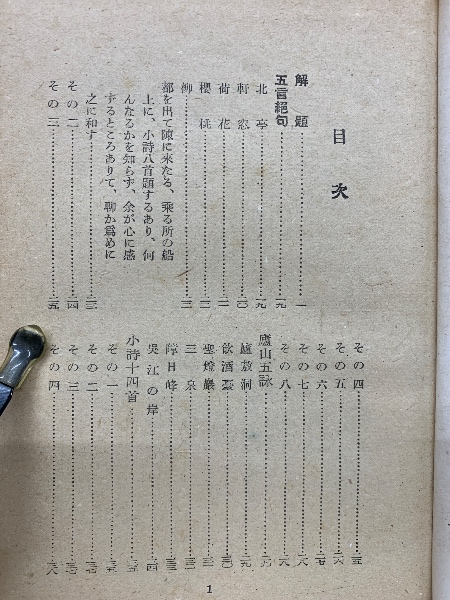 目次
解題……一
五言絶句……一九
北亭……一九
軒窓……二〇
荷花……二一
櫻桃
柳
都を出て陳に來たる、乘る所の船
上に、小詩八首題するあり、何
んなるかを知らず、余が心に感
ずるところありて、聊か爲めに
之に和す……二三
その二……二四
その三……二五
その四……二五
その五……二六
その六……二七
その七……二八
その八……二八
廬山五詠……二九
廬敖洞……二九
飲酒臺……三〇
聖燈巖
三泉
障日峰……三三
呉江の岸……三四
小詩十四首……三五
その一……三五
その二……三七
その三……三七
その四……三八
1